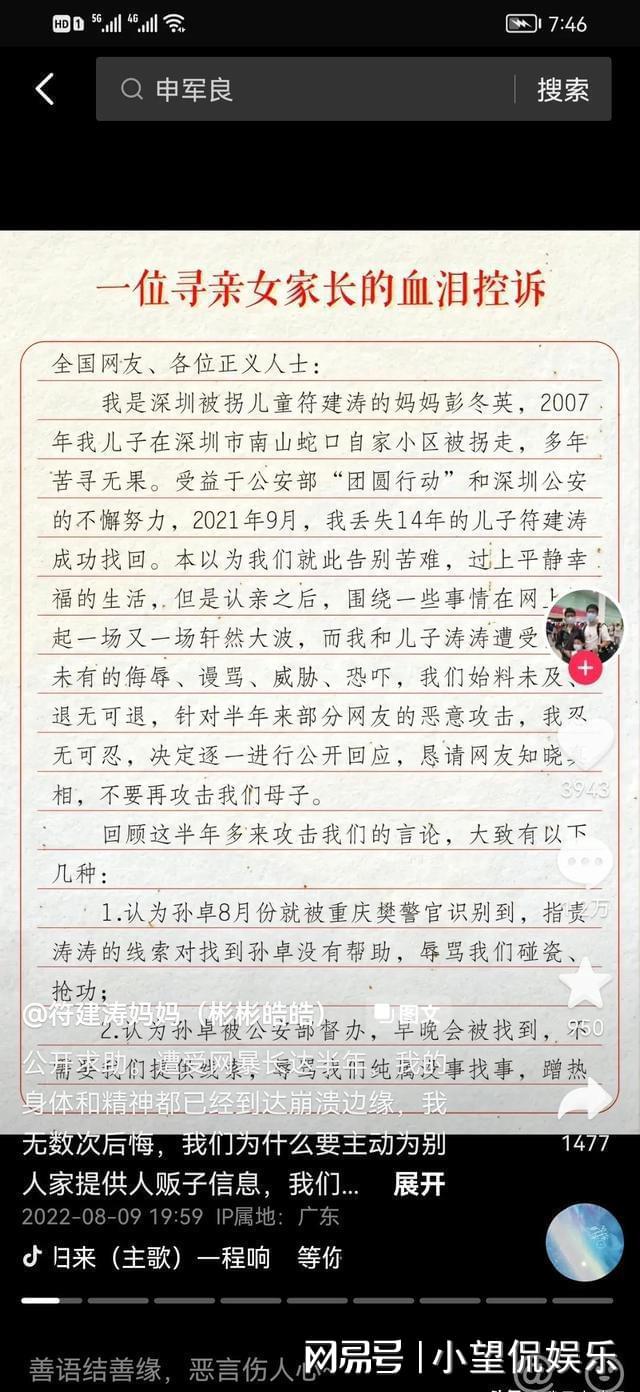 HD 1 5G 4G 7:46
申军良 搜索
一位寻亲女家长的血泪控诉
全国网友、各位正义人士：
我是深圳被拐儿童符建涛的妈妈彭冬英，2007
年我儿子在深圳市南山蛇口自家小区被拐走，多年
苦寻无果。受益于公安部“团圆行动”和深圳公安
的不懈努力，2021年9月，我丢失14年的儿子符建涛
成功找回。本以为我们就此告别苦难，过上平静幸
福的生活，但是认亲之后，围绕一些事情在网上
起一场又一场轩然大波，而我和儿子涛涛遭受
未有的侮辱、谩骂、威胁、恐吓，我们始料未及、
退无可退，针对半年来部分网友的恶意攻击，我忍
无可忍，决定逐一进行公开回应，恳请网友知晓真
相，不要再攻击我们母子。
3943
回顾这半年多来攻击我们的言论，大致有以下
几种：
1.认为孙卓8月份就被重庆樊警官识别到，指责
涛涛的线索对找到孙卓没有帮助，辱骂我们碰瓷、
抢功；
@符建涛妈妈（彬彬皓皓） 图文
950
2.认为孙卓被公安部督办，早晚会被找到，不
需要我们提供线索，辱骂我们纯属没事找事，蹭热
公开求助，遭受网暴长达半年，我的
身体和精神都已经到达崩溃边缘，我
无数次后悔，我们为什么要主动为别
1477
人家提供人贩子信息，我们... 展开
2022-08-09 19:59 IP属地：广东
归来（主歌）一程响 等你
善语结善缘，恶言伤人心~
网易号 | 小望侃娱乐